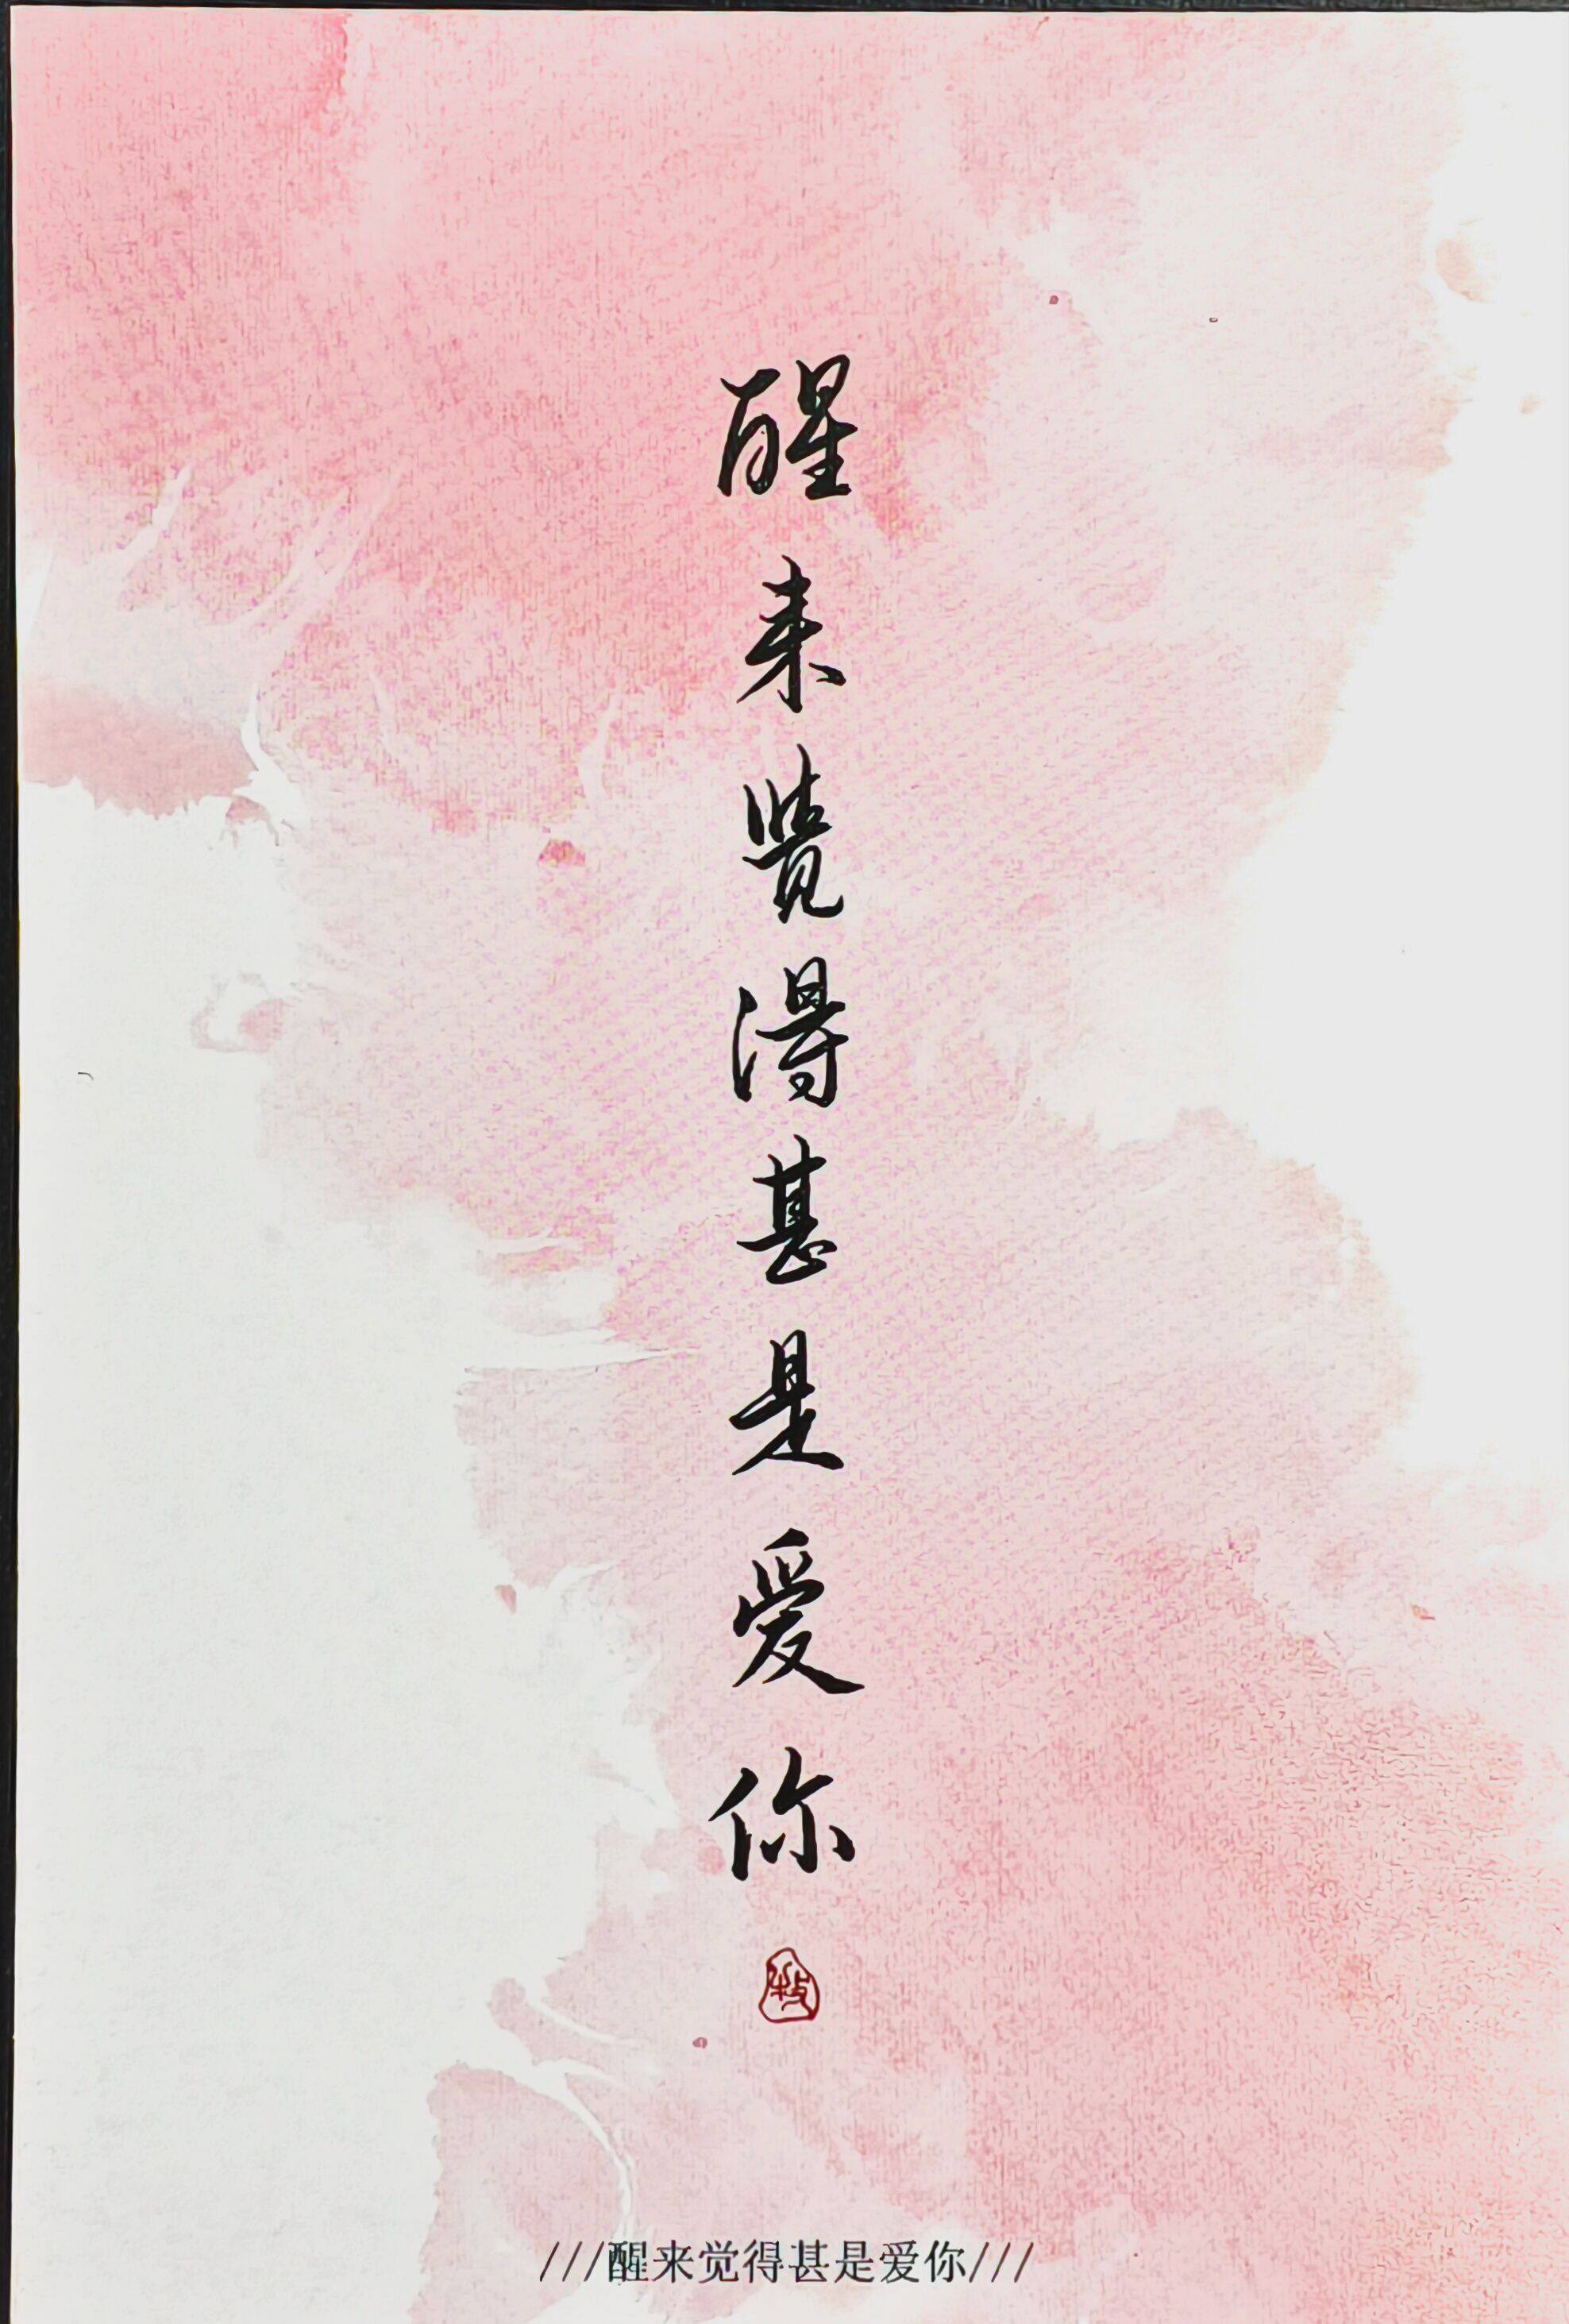 醒来覺得甚是爱你
///醒来觉得甚是爱你///